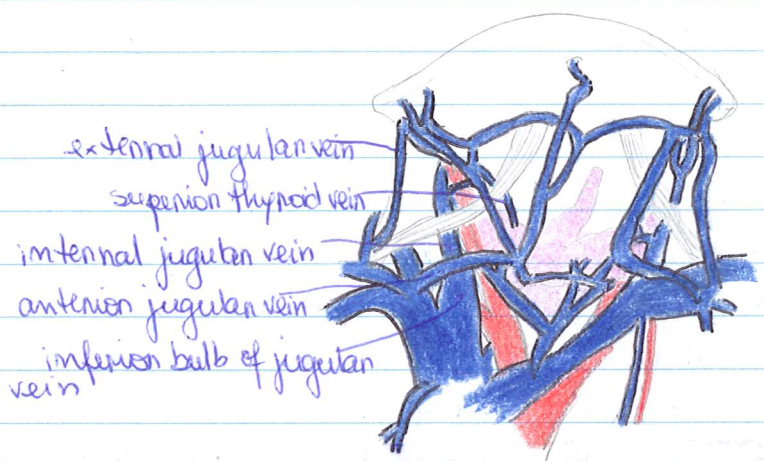 external jugular vein
superior thyroid vein
internal jugular vein
anterior jugular vein
inferior bulb of jugular
vein